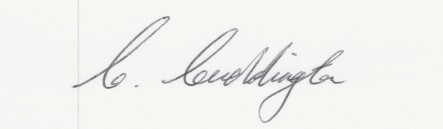 C. Cuddington